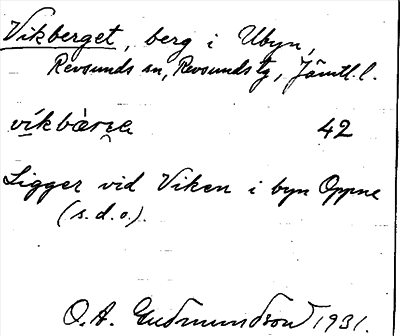 Vikberget, berg i Ubyn,
Revsunds sn, Revsunds tg, Jämtl. l.
42
Ligger vid Viken i byn Oppne
(s.d.o.).
O.A. Gudmundson 1931.